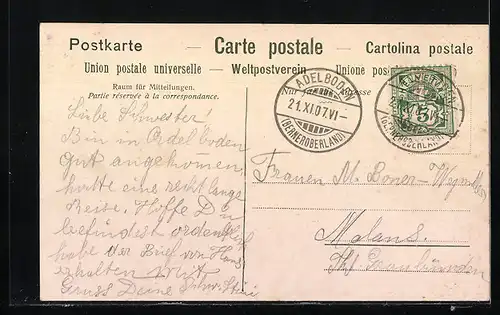 Postkarte — Carte postale — Cartolina postale
Union postale universelle — Weltpostverein — Unione postale
Raum für Mitteilungen.
Partie réservée à la correspondance.
Nur für die Adresse
ADELBODEN
21.XI.07.VI–
(BERNEROBERLAND)
ADELBODEN
(BERNEROBERLAND)
Liebe Schwester!
Bin in Adelboden
gut angekommen,
hatte eine recht lange
Reise. Hoffe Du
befindest ordentlich
habe der Brief von Hans
erhalten
Gruss Deine
Frauen M. Boner-
Malans.
Kt Graubünden